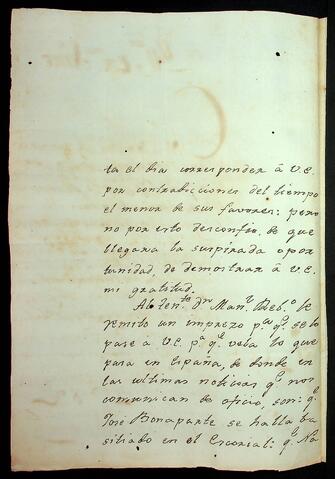 ta el dia corresponder â V.E.
por contradicciones del tiempo
el menor de sus favores: pero
no por esto desconfio, de que
llegara la suspirada opor
tunidad, de demostrar â V.E.
mi gratitud.
Al Ten.te Dn Man.l Reb.o le
remito un impreso pa. qe. se lo
pase a V.E. pa. qe. vela lo que
pasa en España, de donde en
las ultimas noticias qe nos
comunican de oficio, son: qe.
José Bonaparte se halla ba
siliado en el Escorial: qe Na